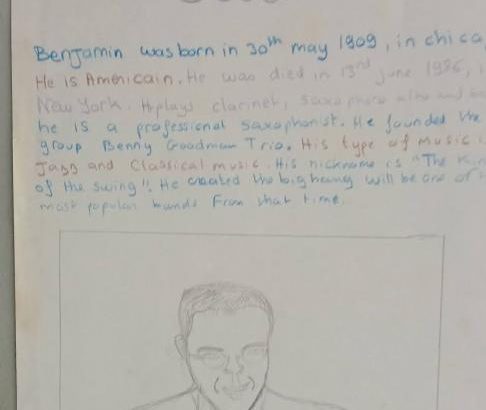 Benjamin was born in 30th may 1909, in chica
He is Americain. He was died in 13rd June 1986, i
New York. H plays clarinet, saxophone alto and ba
he is a professional saxophonist. He founded the
group Benny Goodman Trio. His type of music i
Jazz and Classical music. His nickname is "The Kin
of the swing". He created the big will be one of
most popular bands from that time.